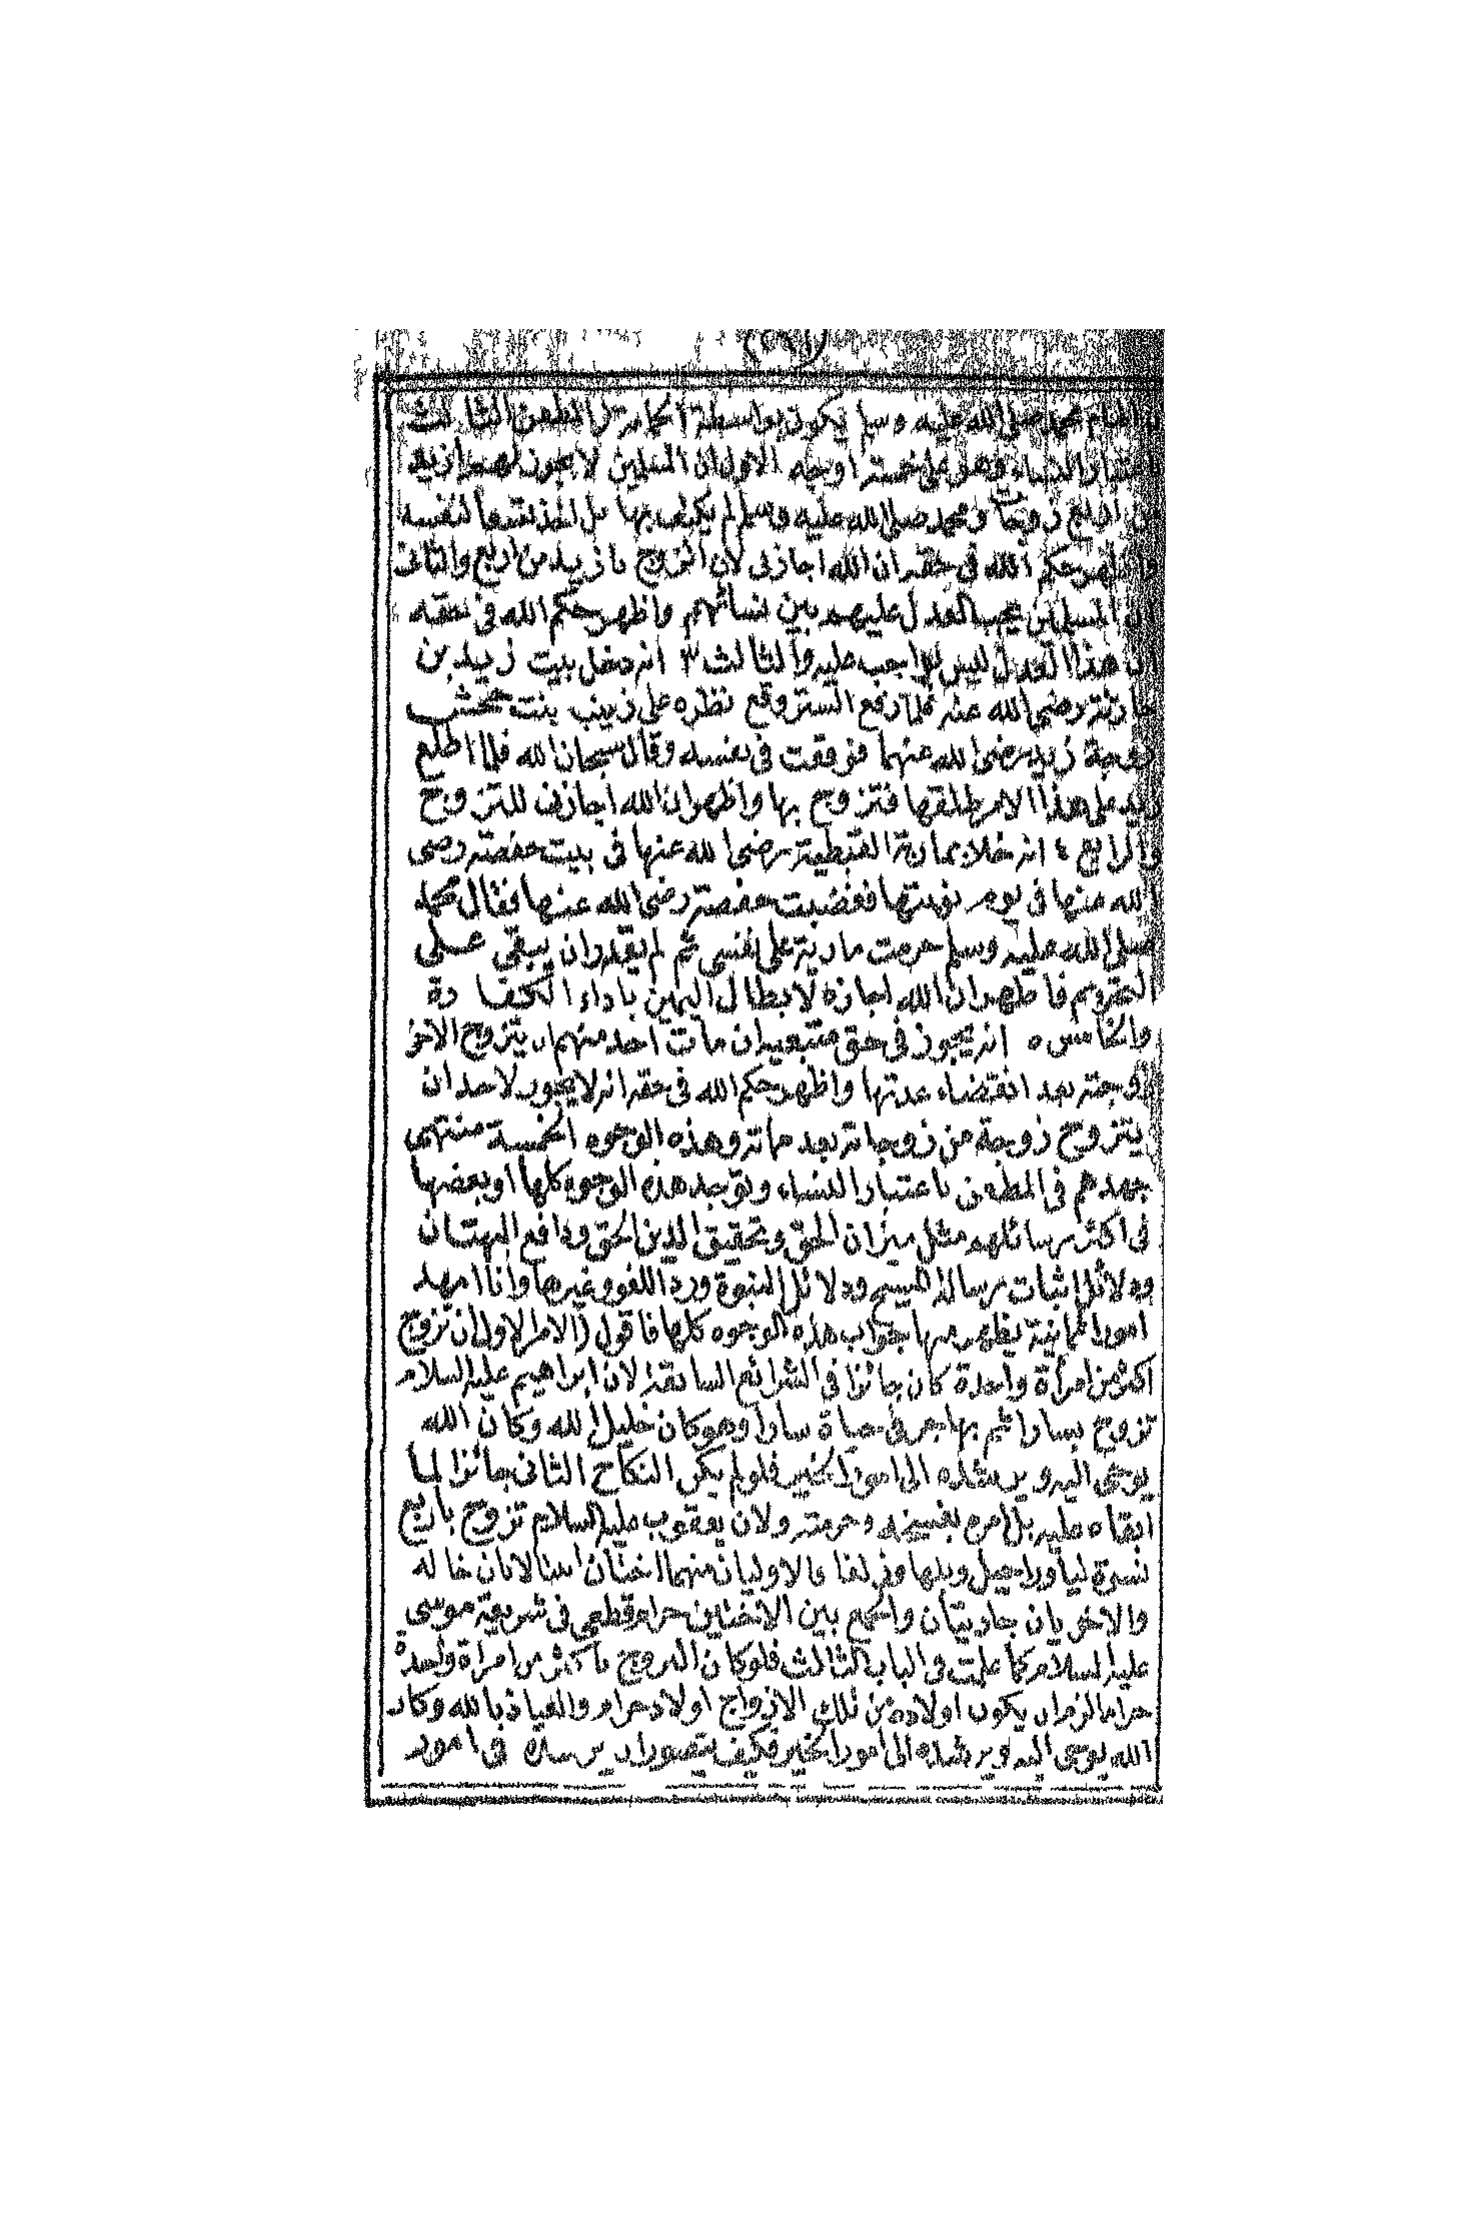 محمد صلى الله عليه وسلم يكون بواسطة الحمامة المطعن الثالث
باعتبار النساء وهو على خمسة أوجه الاول ان المسلمين لا يجوز لهم ازيد
من اربع زوجات ومحمد صلى الله عليه وسلم لم يكتف بها بل اخذ تسعا لنفسه
واظهر حكم الله في حقه ان الله اجازنى لان اتزوج بازيد من اربع والثانى
ان المسلمين يجب العدل عليهم بين نسائهم واظهر حكم الله فى حقه
ان هذا العدل ليس بواجب عليه والثالث ٣ انه دخل بيت زيد بن
حارثة رضى الله عنه فلما رفع الستر وقع نظره على زينب بنت جحش
زوجة زيد رضى الله عنهما فوقعت فى نفسه وقال سبحان الله فلما اطلع
زيد على هذا الامر طلقها فتزوج بها واظهر ان الله اجازنى للتزوج
والرابع ٤ انه خلا بمارية القبطية رضى الله عنها فى بيت حفصة رضى
الله عنها فى يوم نوبتها فغضبت حفصة رضى الله عنها فقال محمد
صلى الله عليه وسلم حرمت مارية على نفسى ثم لم يقدر ان يبقى على
التحريم فاظهر ان الله اجازه لابطال اليمين باداء الكفارة
والخامس ٥ انه يجوز فى حق متبعيه ان مات احد منهم ان يتزوج الاخر
زوجته بعد انقضاء عدتها واظهر حكم الله فى حقه انه لا يجوز لاحد ان
يتزوج زوجة من زوجاته بعد مماته وهذه الوجوه الخمسة منتهى
جهدهم فى المطعن باعتبار النساء وتوجد هذه الوجوه كلها او بعضها
فى اكثر رسائلهم مثل ميزان الحق وتحقيق الدين الحق ودافع البهتان
ودلائل اثبات رسالة المسيح ودلائل النبوة ورد اللغو وغيرها وانا امهد
امورا ثمانية يظهر منها جواب هذه الوجوه كلها فاقول (الامر الاول) ان تزوج
اكثر من امرأة واحدة كان جائزا فى الشرائع السابقة لان ابراهيم عليه السلام
تزوج بسارا ثم بهاجر فى حياة سارا وهو كان خليل الله وكان الله
يوحى اليه ويرشده الى امور الخير فلو لم يكن النكاح الثانى جائزا لما
ابقاه عليه بل امره بفسخه وحرمته ولان يعقوب عليه السلام تزوج باربع
نسوة ليا وراحيل وبلها وزلفا فالاوليان منهما اختان ابنتا لابان خاله
والاخريان جاريتان والجمع بين الاختين حرام قطعى فى شريعة موسى
عليه السلام كما علمت فى الباب الثالث فلو كان التزوج باكثر من امراة واحدة
حراما لزم ان يكون اولاده من تلك الازواج اولاد حرام والعياذ بالله وكان
الله يوحى اليه ويرشده الى امور الخير فكيف يتصور ان يرشده فى امور